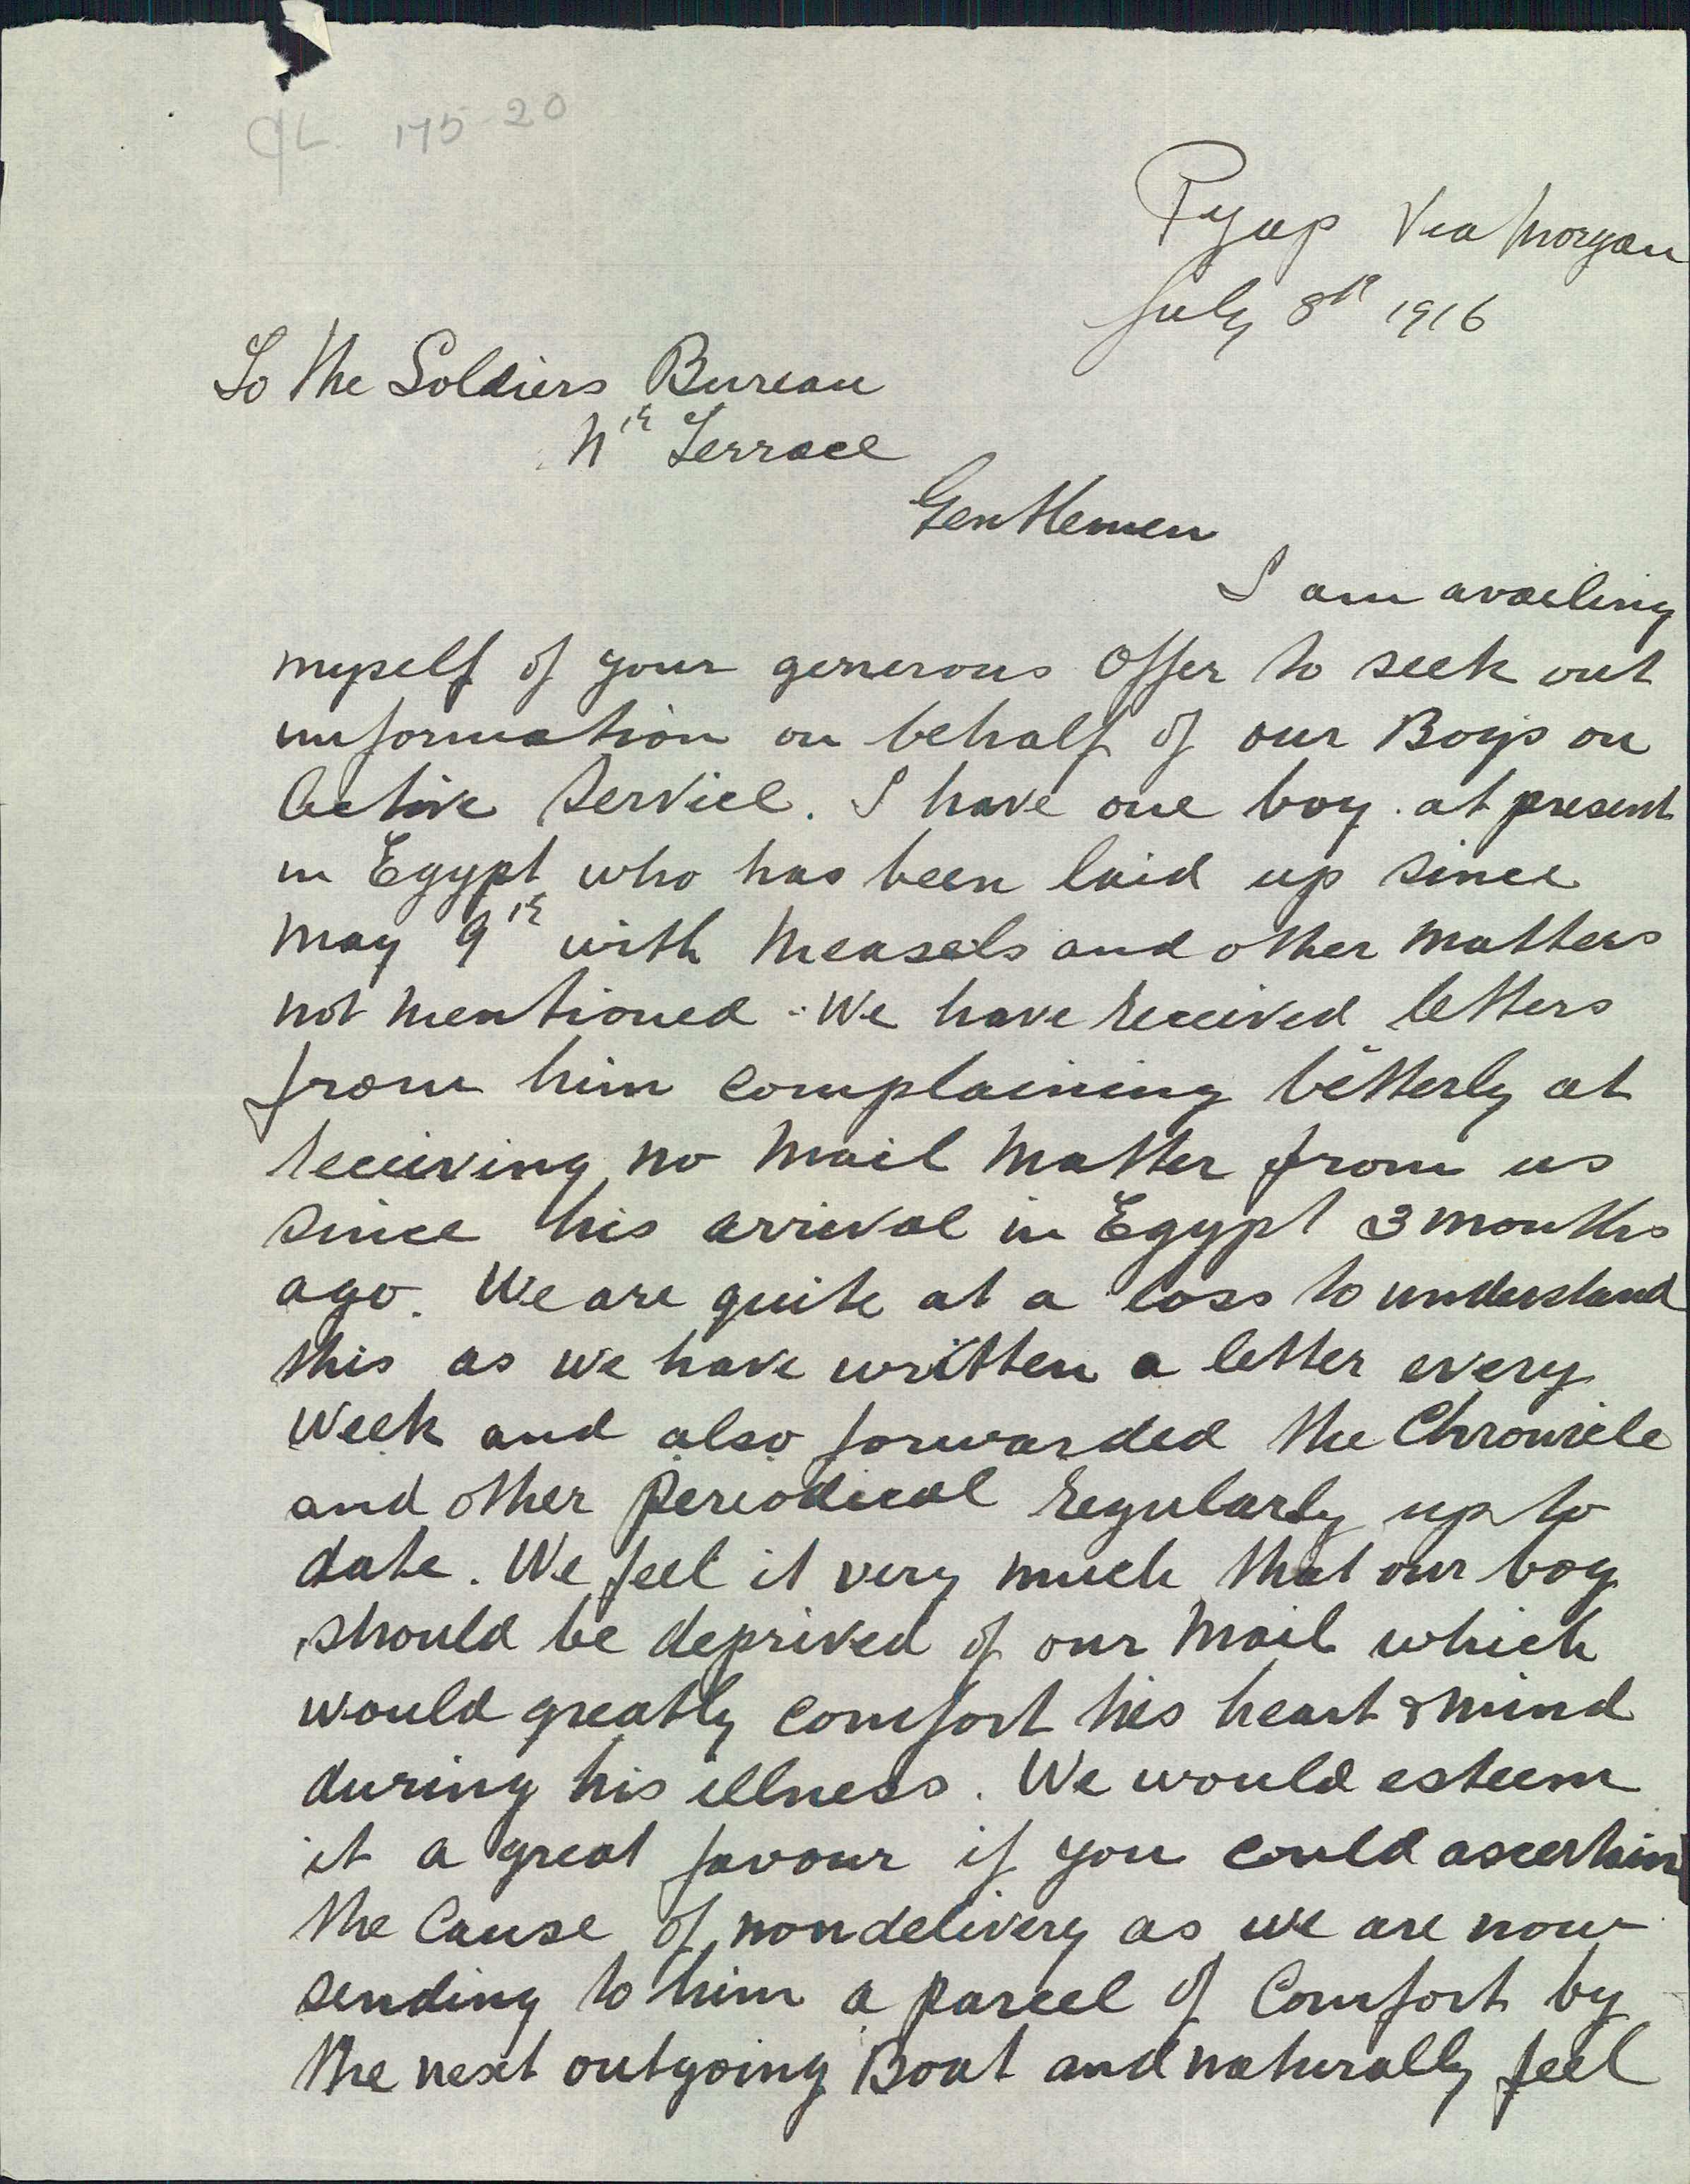 175-20
Pyap Via Morgan
July 8th 1916
To The Soldiers Bureau
Nth Terrace
Gentlemen
I am availing
myself of your generous Offer to seek out
information on behalf of our Boys on
Active Service. I have one boy at present
in Egypt who has been laid up since
May 9th with Measels and other matters
not mentioned. We have received letters
from him complaining bitterly at
receiving no Mail Matter from us
since his arrival in Egypt 3 months
ago. We are quite at a loss to understand
this as we have written a letter every
week and also forwarded the Chronicle
and other Periodical regularly up to
date. We feel it very much that our boy
should be deprived of our Mail which
would greatly comfort his heart & mind
during his illness. We would esteem
it a great favour if you could ascertain
the Cause of nondelivery as we are now
sending to him a parcel of Comfort by
the next outgoing Boat and naturally feel